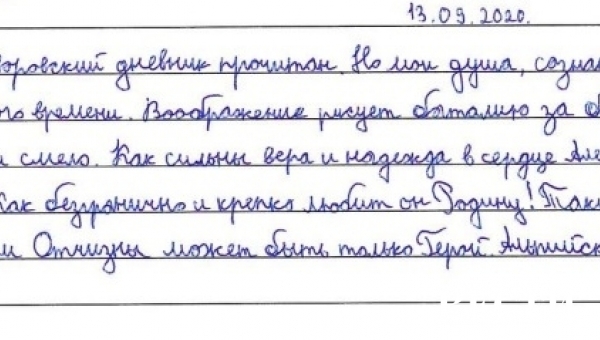 13.09.2020.
оровский дневник прочитан. Но моя душа, созна
ого времени. Воображение рисует баталию за б
и смело. Как сильны вера и надежда в сердце Але
Как безгранично и крепко любит он Родину! Таки
м Отчизны может быть только Герой. Альпийск